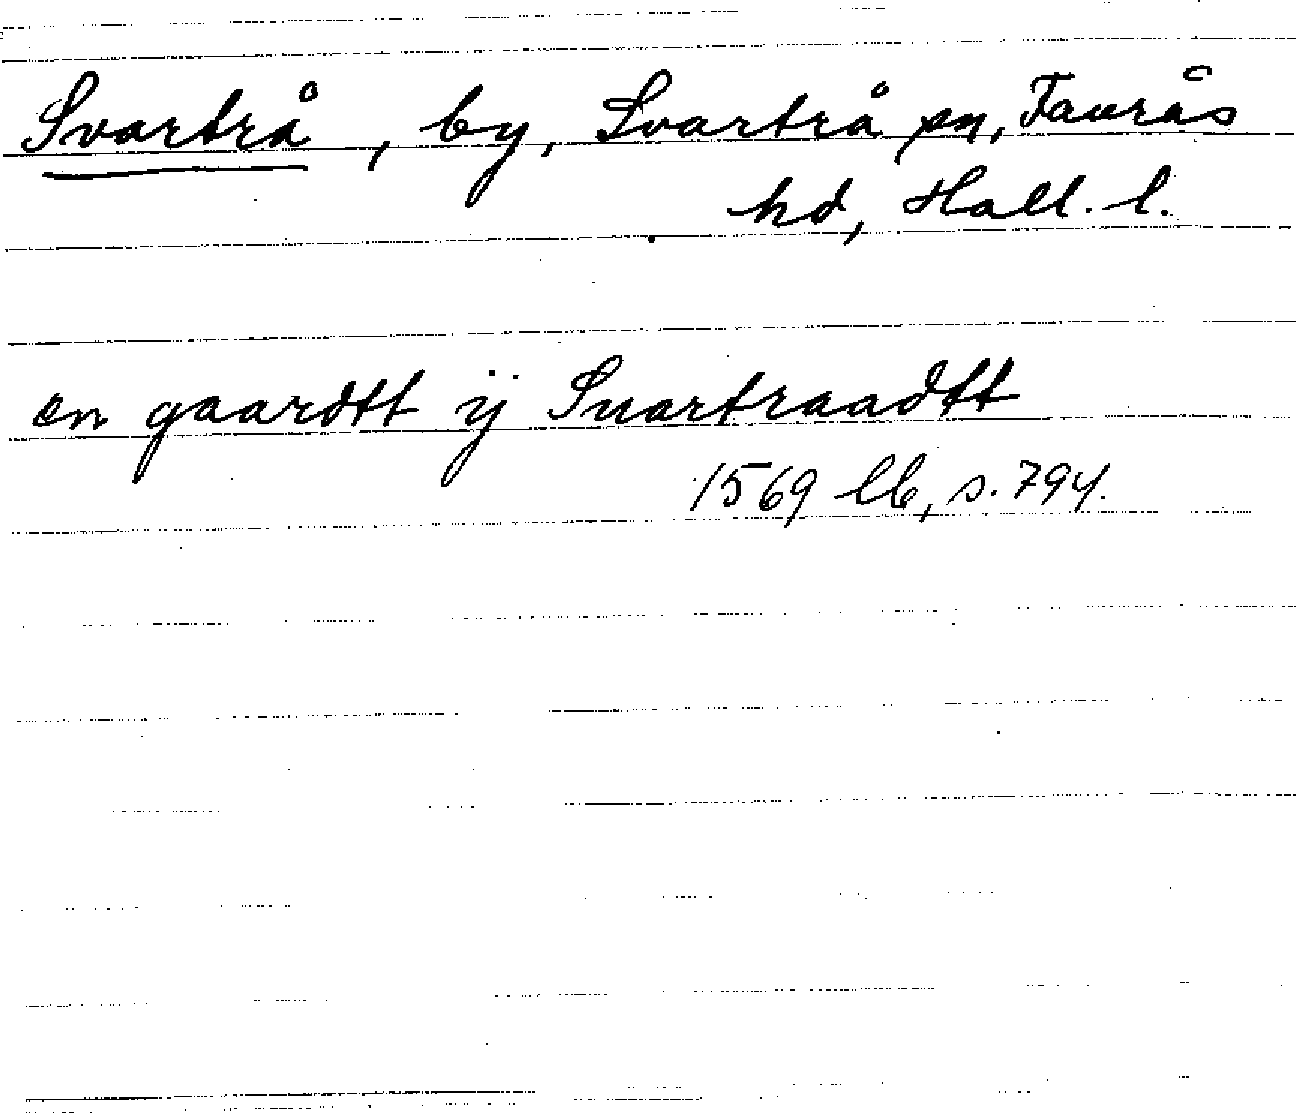 Svartrå, by, Svartrå sn, Faurås
hd, Hall. l.
en gaardtt ÿ Suartraadtt
1569 lb, s. 794.